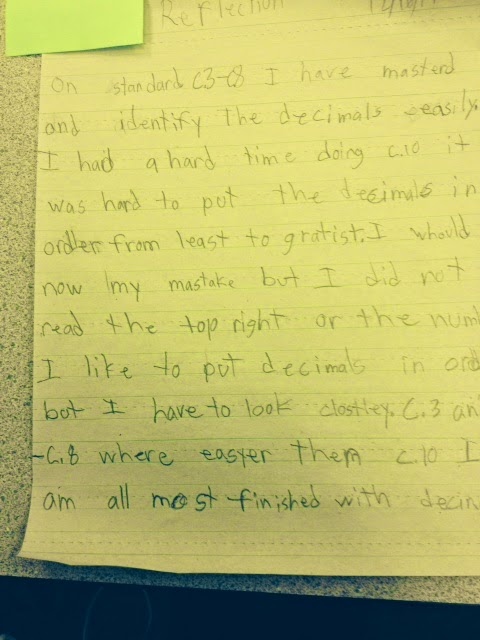 Reflection
On standard C3-C8 I have masterd
and identify the decimals easily.
I had a hard time doing C.10 it
was hard to put the decimals in
order from least to gratist. I whould
now my mastake but I did not
read the top right or the num
I like to put decimals in ord
but I have to look clostley. C.3 an
-C.8 where easyer then C.10 I
am all most finished with decim